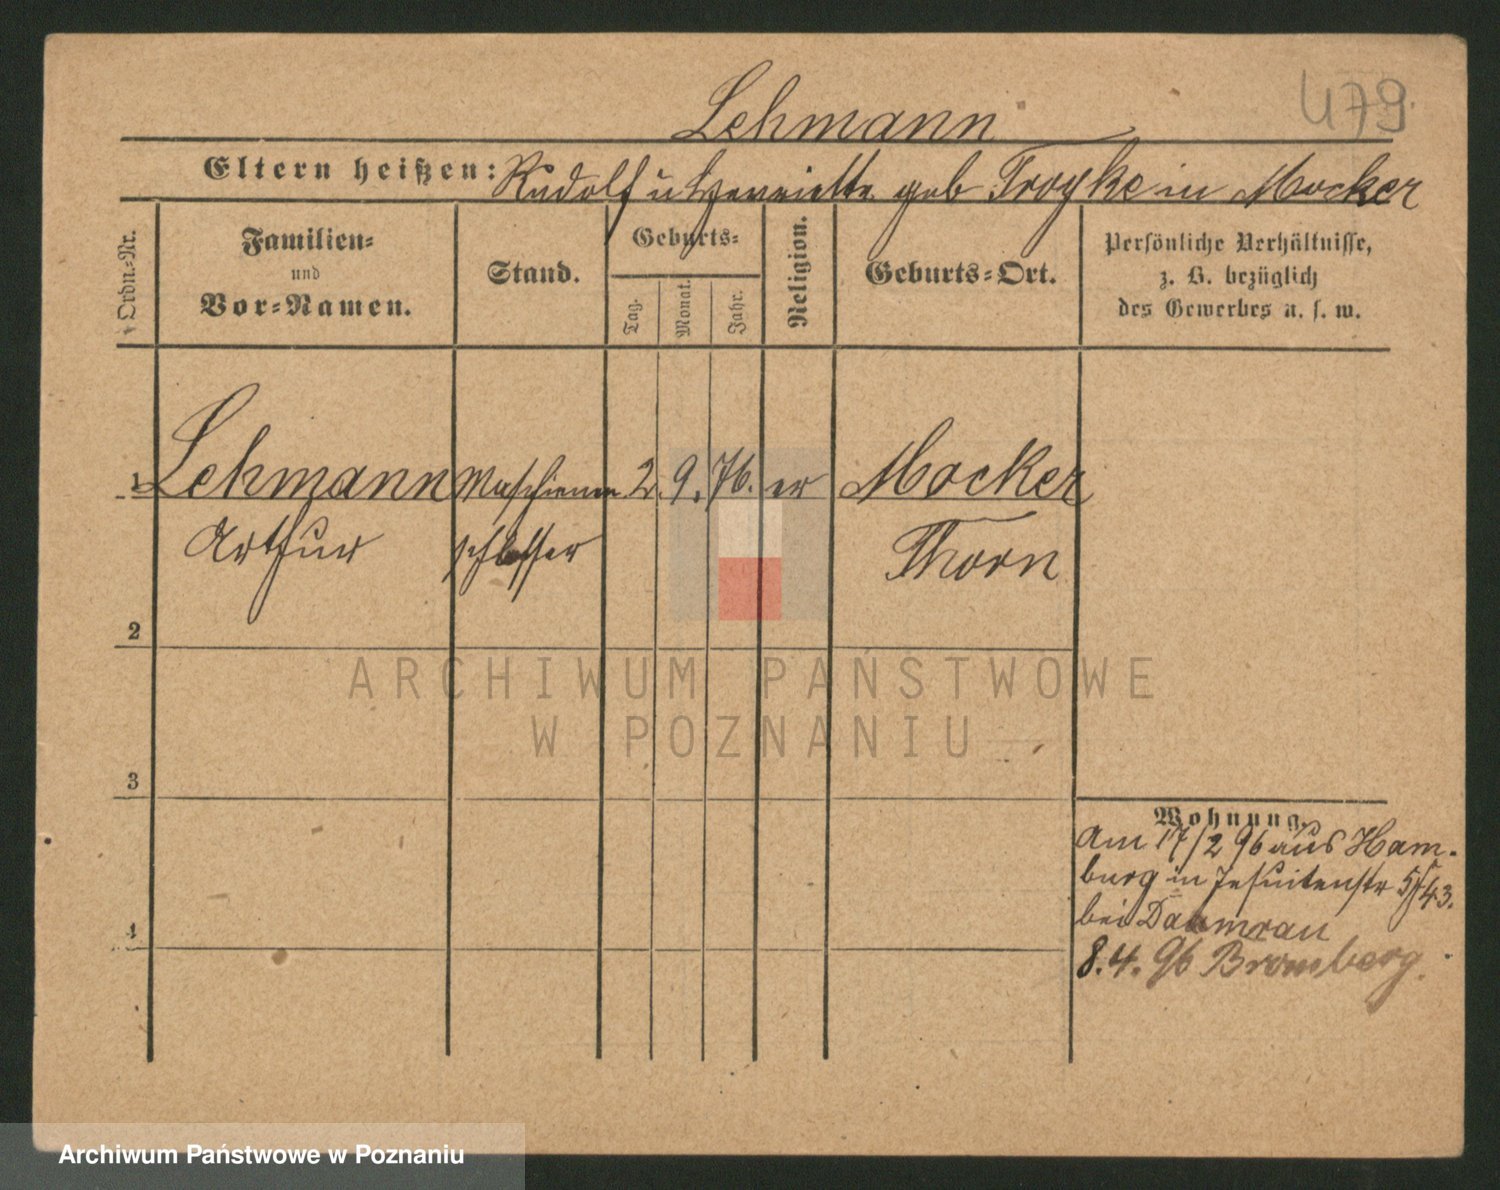 479.
Lehmann
Eltern heißen: Rudolf u Henriette geb Troyke in Mocker
Ordn.-Nr.
Familien-
und
Vor-Namen.
Stand.
Geburts-
Tag.
Monat.
Jahr.
Religion.
Geburts-Ort.
Persönliche Verhältnisse,
z. B. bezüglich
des Gewerbes u. s. w.
1 Lehmann Maschienen 2. 9. 76. ev Mocker
Arthur schlosser Thorn
2
3
4
Wohnung.
Am 17/2 96 aus Ham-
burg in Jesuitenstr 5/43.
bei Daumrau
8.4. 96 Bromberg.
ARCHIWUM PAŃSTWOWE
W POZNANIU
Archiwum Państwowe w Poznaniu